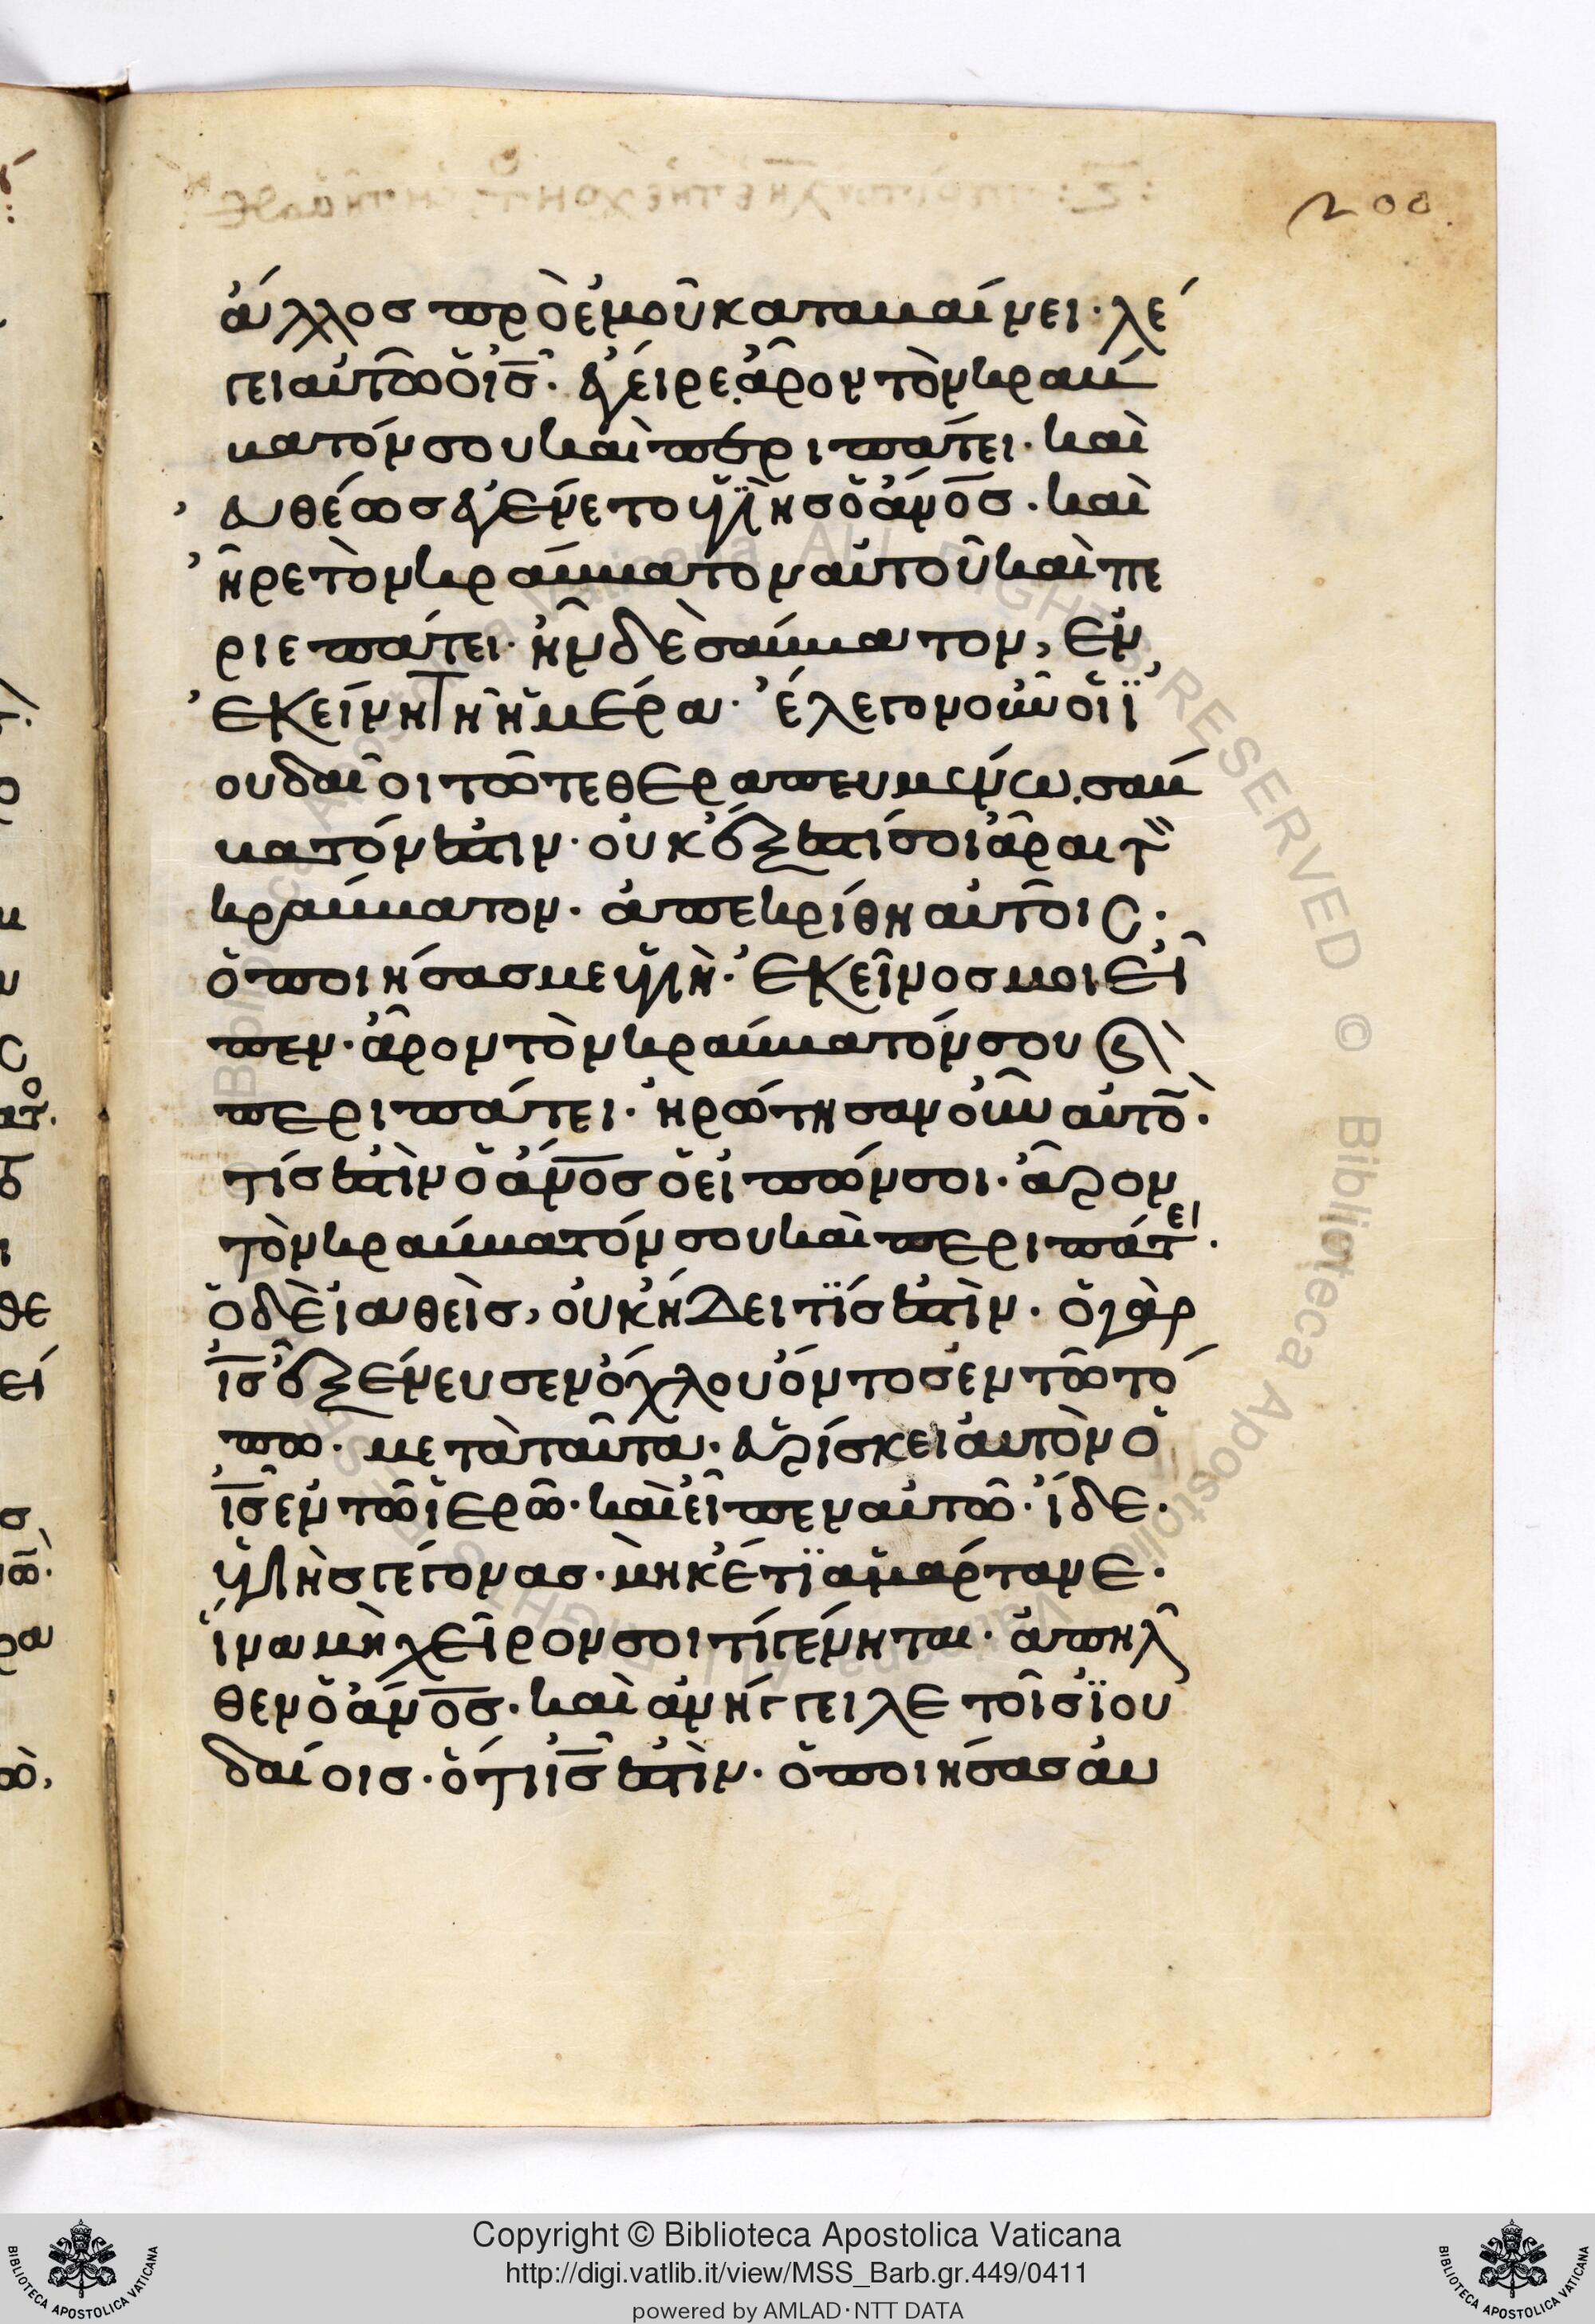 200
ἄλλος πρὸ ἐμοῦ καταβαίνει· λέ
γει αὐτῶ ὁ ις̅· ἔγειρε. ἆρον τὸν κράβ
βατόν σου καὶ περιπάτει· καὶ
εὐθέως ἐγένετο ὑγιὴς ὁ ἄνο̅ς· καὶ
ἦρε τὸν κράββατον αὐτοῦ καὶ πε
ριεπάτει· ἦν δὲ σάββατον, ἐν
ἐκείνη τῆ ἡμέρα· ἔλεγον οὖν οἱ ἰ
ουδαῖοι τῶ τεθεραπευμένω. σάβ
βατόν ἐστιν· οὐκ ἔξεστί σοι ἆραι τ̀
κράββατον· ἀπεκρίθη αὐτοῖς·
ὁ ποιήσας με ὑγιῆ· ἐκεῖνός μοι εἶ
πεν· ἆρον τὸν κράββατόν σου ϗ̀
περιπάτει· ἠρώτησαν οὖν αὐτὸ̅·
τίς ἐστὶν ὁ ἄνο̅ς ὁ εἰπών σοι· ἆρον
τὸν κράββατόν σου καὶ περιπάτει·
ὁ δὲ ἰαθεὶς, οὐκ ἤδει τίς ἐστὶν· ὁ γὰρ
ις̅ ἐξένευσεν ὄχλου ὄντος ἐν τῶ τό
πω· μετὰ ταῦτα· εὑρίσκει αὐτὸν ὁ
ις̅ ἐν τῶ ἱερῶ· καὶ εἶπεν αὐτῶ· ἴδε·
ὑγιὴς γέγονας· μηκέτι ἁμάρτανε·
ἵνα μὴ χεῖρον σοι τί γένηται· ἀπῆλ
θεν ὁ ἄνο̅ς· καὶ ἀνήγγειλε τοῖς ἰου
δαίοις· ὅτι ις̅ ἐστὶν· ὁ ποιήσας αὐ
Copyright © Biblioteca Apostolica Vaticana
http://digi.vatlib.it/view/MSS_Barb.gr.449/0411
powered by AMLAD·NTT DATA
BIBLIOTECA APOSTOLICA VATICANA
BIBLIOTECA APOSTOLICA VATICANA